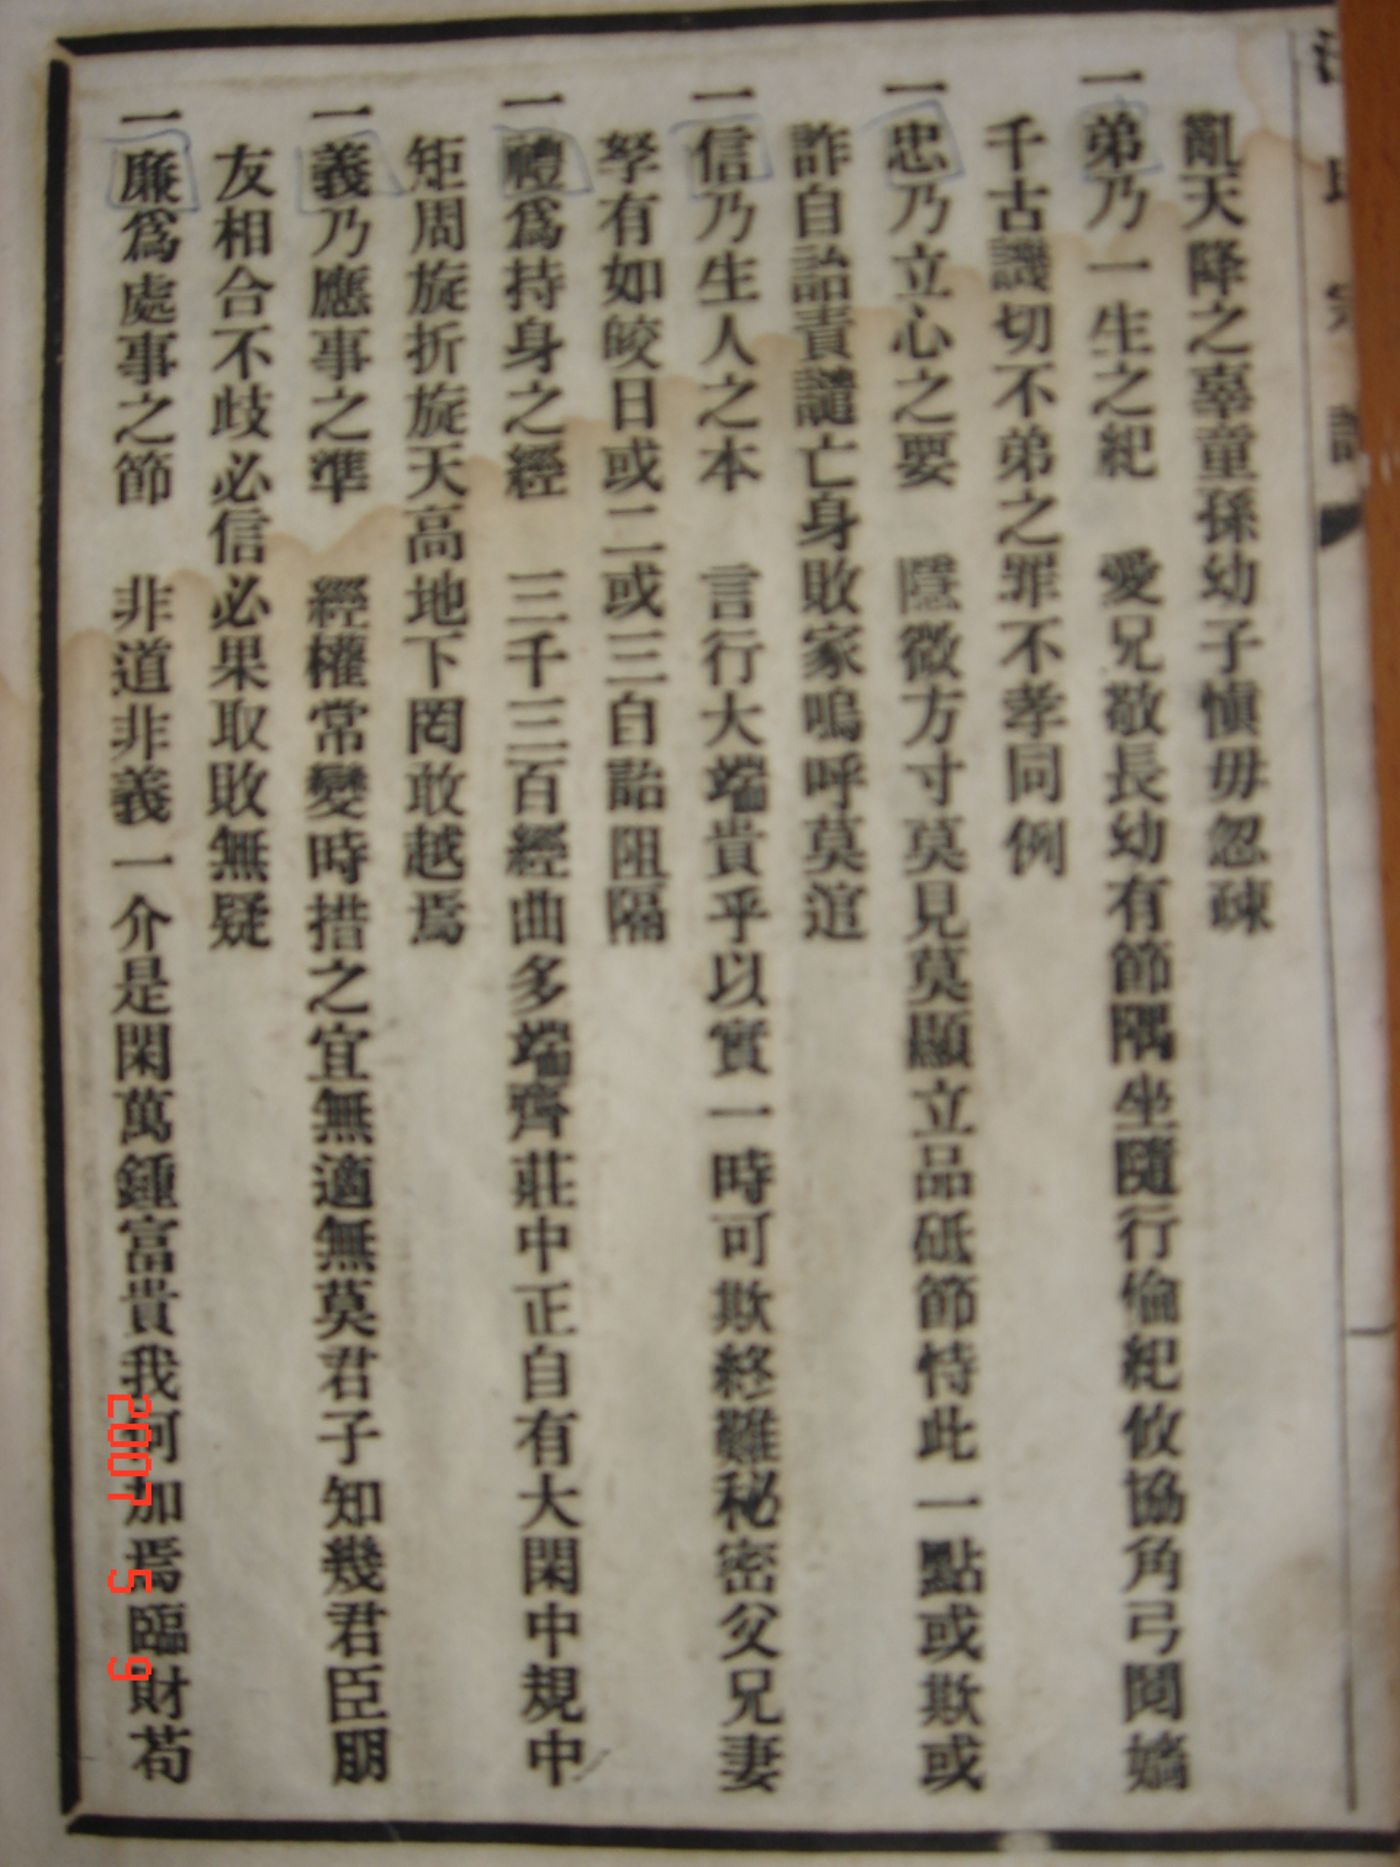 亂天降之辜童孫幼子愼毋忽疎
一弟乃一生之紀 愛兄敬長幼有節隅坐隨行倫紀攸協角弓鬩嬌
千古譏切不弟之罪不孝同例
一忠乃立心之要 隱微方寸莫見莫顯立品砥節恃此一點或欺或
詐自詒責譴亡身敗家嗚呼莫逭
一信乃生人之本 言行大端貴乎以實一時可欺終難秘密父兄妻
孥有如皎日或二或三自詒阻隔
一禮爲持身之經 三千三百經曲多端齊莊中正自有大閑中規中
矩周旋折旋天高地下罔敢越焉
一義乃應事之準 經權常變時措之宜無適無莫君子知幾君臣朋
友相合不歧必信必果取敗無疑
一廉爲處事之節 非道非義一介是閑萬鍾富貴我何加焉臨財苟
2007 5 9